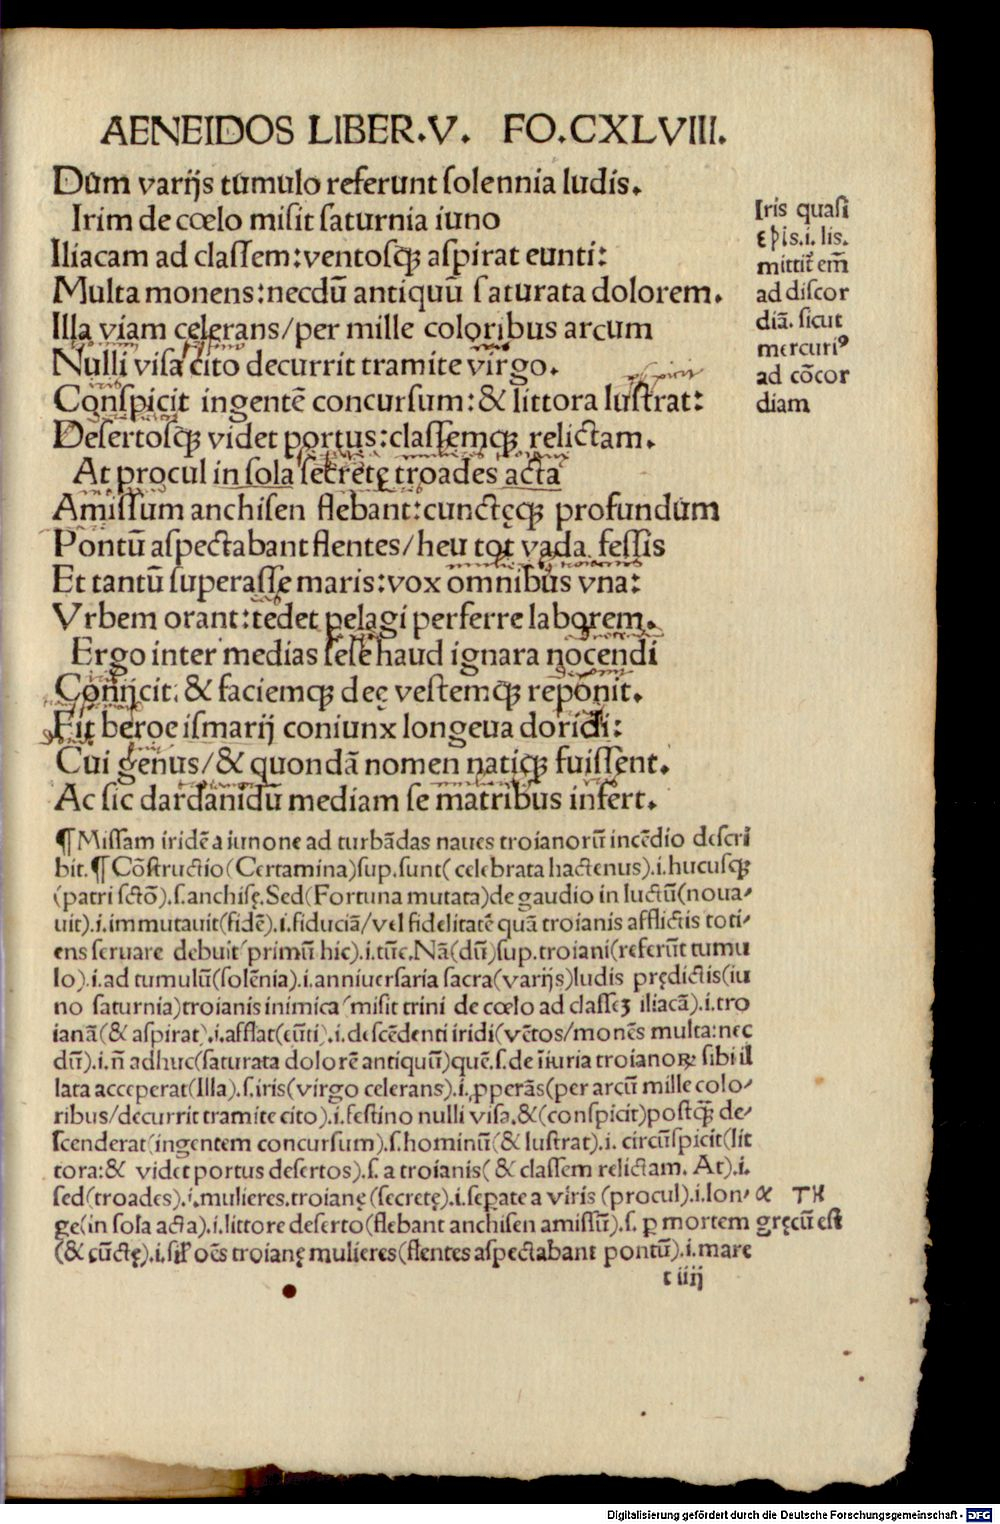 AENEIDOS LIBER.V. FO.CXLVIII.
Dum varijs tumulo referunt ſolennia ludis.
Irim de cœlo miſit ſaturnia iuno
Iliacam ad claſſem:ventoſqꝫ aſpirat eunti:
Multa monens:necdū antiquū ſaturata dolorem.
Illa viam celerans/per mille coloribus arcum
Nulli viſa cito decurrit tramite virgo.
Conſpicit ingentē concurſum:& littora luſtrat:
Deſertoſqꝫ videt portus:claſſemqꝫ relictam.
At procul in ſola ſecretę troades acta
Amiſſum anchiſen flebant:cunctęqꝫ profundum
Pontū aſpectabant flentes/heu tot vada feſſis
Et tantū ſuperaſſe maris:vox omnibus vna:
Vrbem orant:tedet pelagi perferre laborem.
Ergo inter medias ſeſe haud ignara nocendi
Conijcit. & faciemqꝫ deę veſtemqꝫ reponit.
Fit beroe iſmarij coniunx longeua doridi:
Cui genus/& quondā nomen natiqꝫ fuiſſent.
Ac ſic dardanidū mediam ſe matribus infert.
Iris quaſi
ερις.i. lis.
mittit̄ em̄
ad diſcor
diā. ſicut
mercuriꝰ
ad cōcor
diam
¶ Miſſam iridē a iunone ad turbādas naues troianorū incēdio deſcri
bit. ¶ Cōſtructio(Certamina)ſup.ſunt( celebrata hactenus).i.hucuſqꝫ
(patri ſctō).ſ.anchiſę.Sed(Fortuna mutata)de gaudio in luctū(noua-
uit).i.immutauit(fidē).i.fiduciā/vel fidelitatē quā troianis afflictis toti-
ens ſeruare debuit(primū hic).i.tūc.Nā(dū)ſup.troiani(referūt tumu
lo).i.ad tumulū(ſolēnia).i.anniuerſaria ſacra(varijs)ludis prędictis(iu
no ſaturnia)troianis inimica(miſit irini de cœlo ad claſſeꝫ iliacā).i.tro
ianā(& aſpirat).i.afflat(eūti).i.deſcēdenti iridi(vētos/monēs multa:nec
dū).i.n̄ adhuc(ſaturata dolorē antiquū)quē.ſ.de iīuria troianoꝝ ſibi il
lata acceperat(Illa).ſ.iris(virgo celerans).i.ꝓperās(per arcū mille colo-
ribus/decurrit tramite cito).i.feſtino nulli viſa.&(conſpicit)poſtqꝫ de-
ſcenderat(ingentem concurſum).ſ.hominū(& luſtrat).i. circūſpicit(lit
tora:& videt portus deſertos).ſ. a troianis( & claſſem relictam. At).i.
ſed(troades).i.mulieres.troianę(ſecretę).i.ſeꝑate a viris (procul).i.lon-
ge(in ſola acta).i.littore deſerto(flebant anchiſen amiſſū).ſ. ꝑ mortem
(& cūctę).i.ſil̄ oēs troianę mulieres(flentes aſpectabant pontū).i.mare
gręcū eſt
t iiij
Digitalisierung gefördert durch die Deutsche Forschungsgemeinschaft - DFG